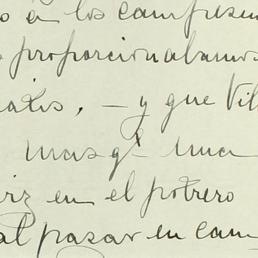 o a los campesin
s proporcionabamos
ratis, - y que Vil
mas qe una
riz en el potrero
al pazar en cam